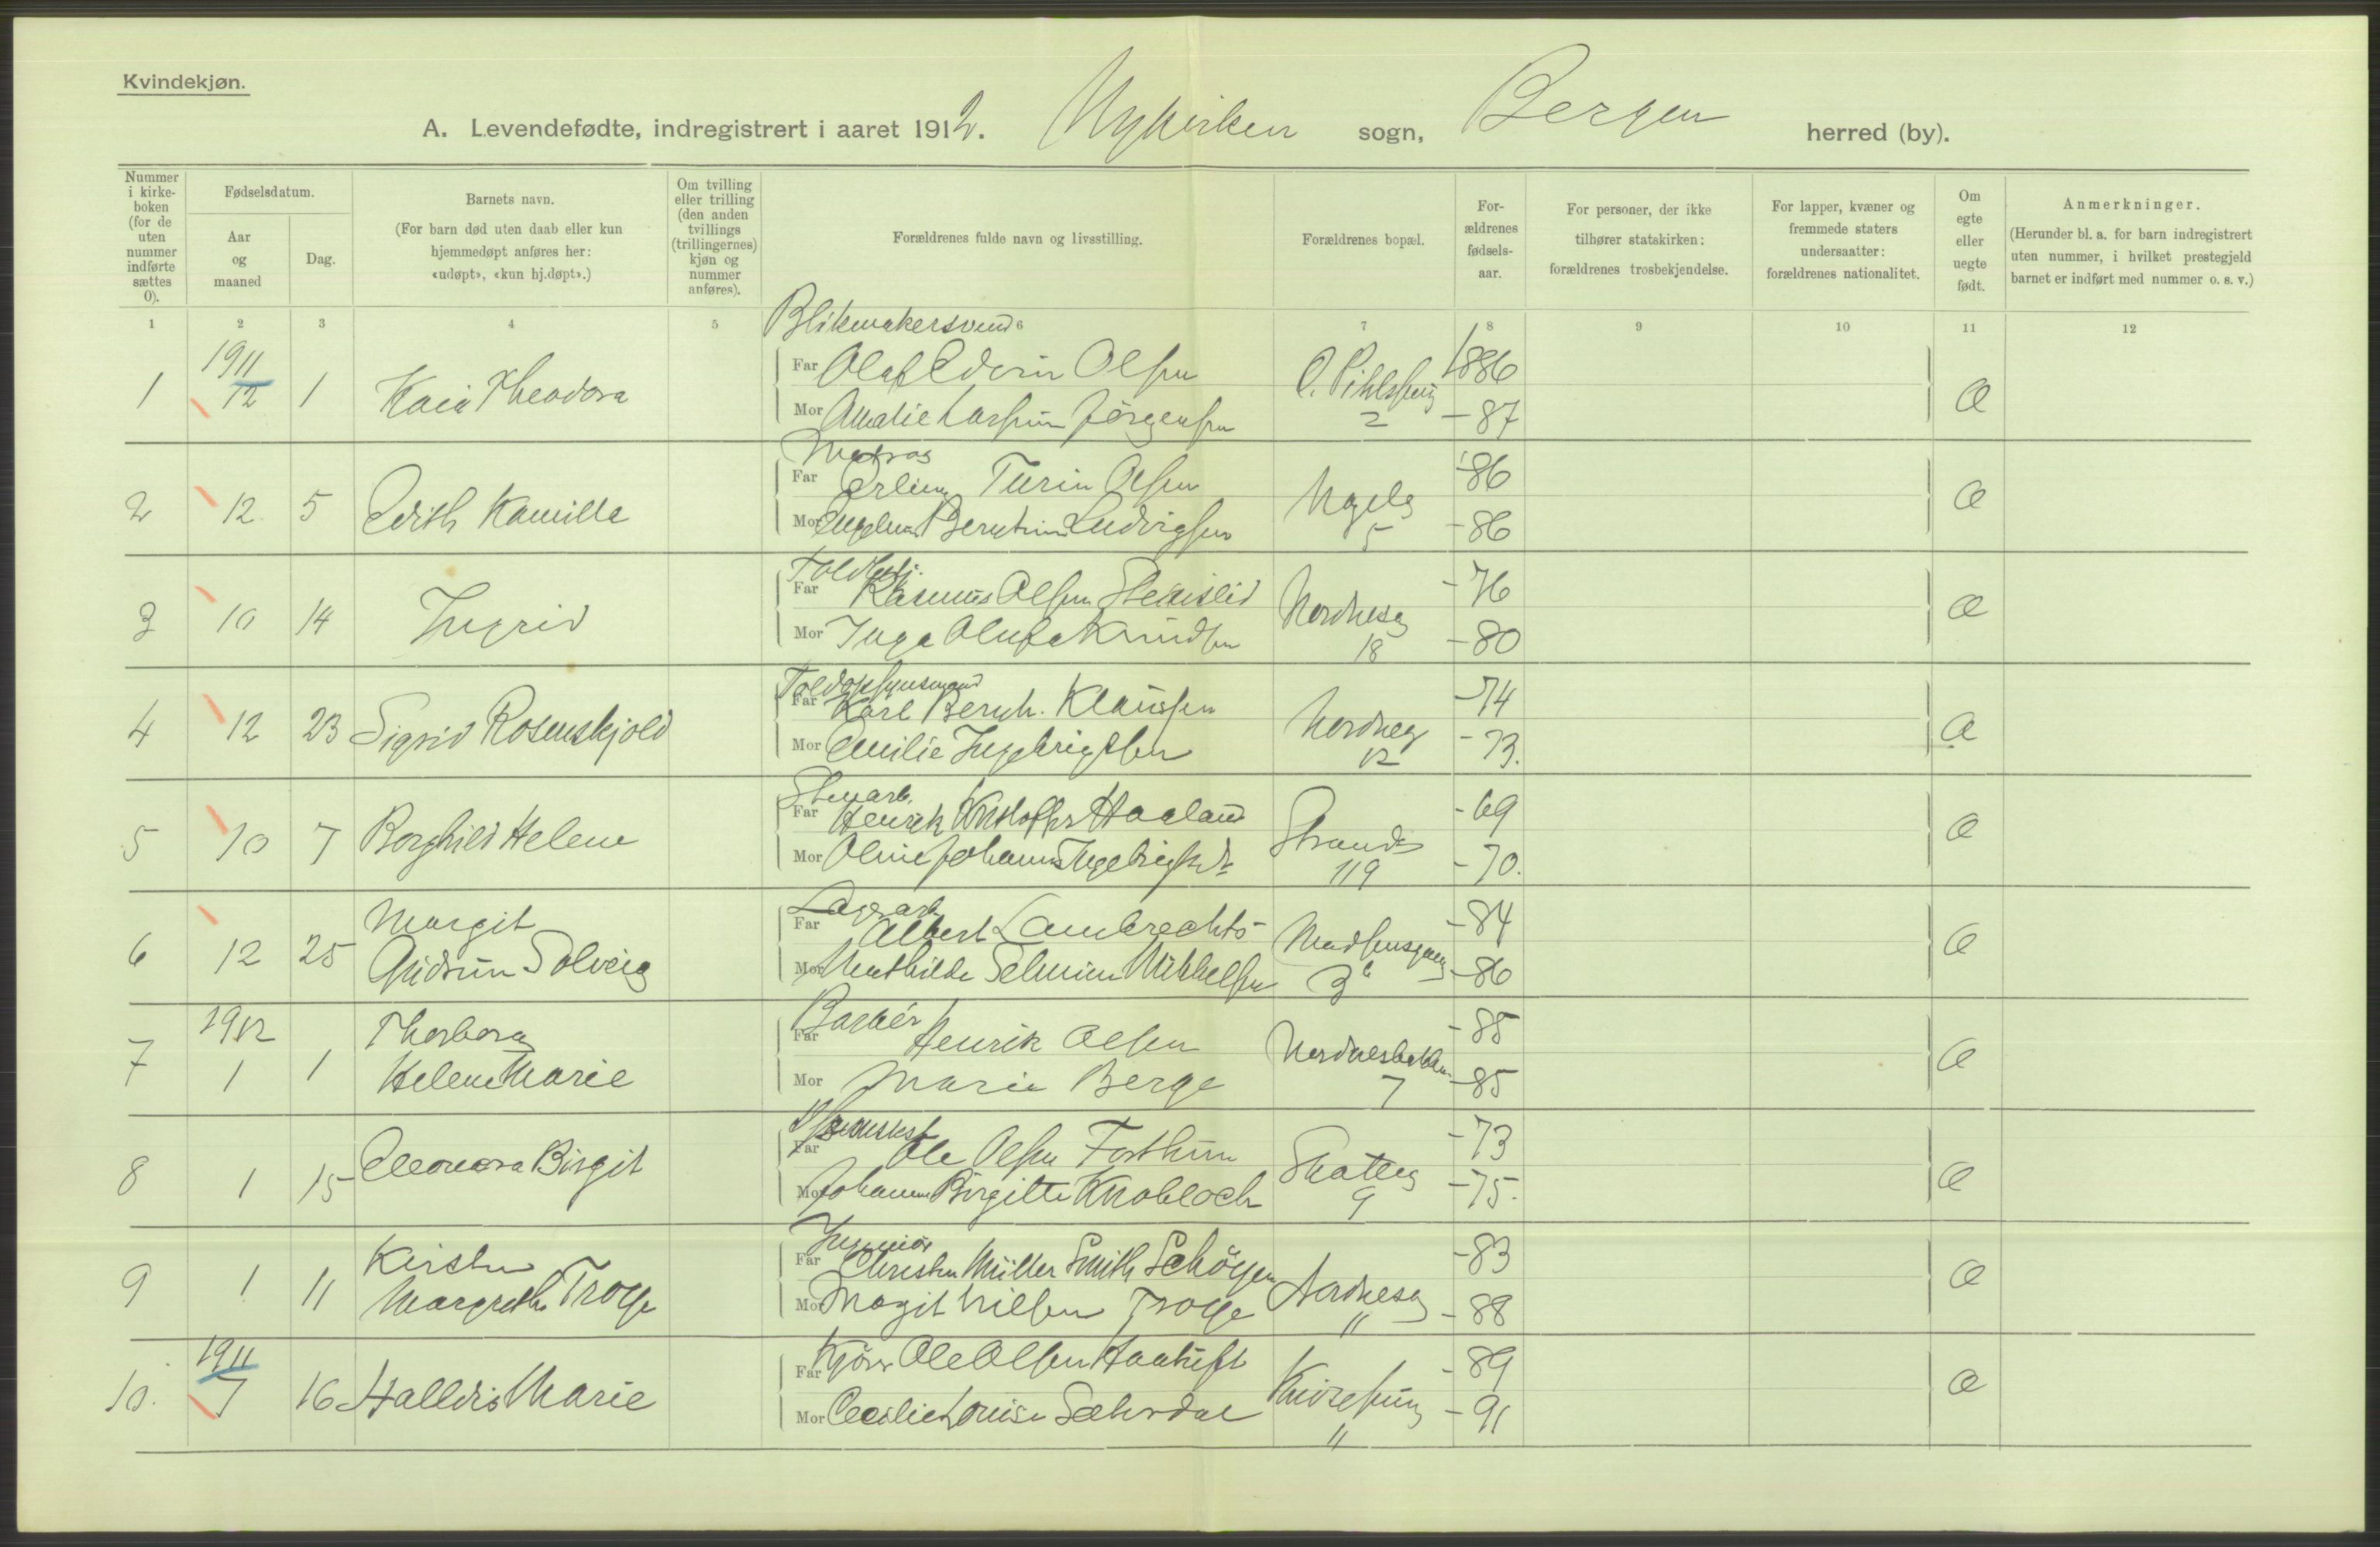 Kvindekjøn.
A. Levendefødte, indregistrert i aaret 1912. Nykirken sogn, Bergen herred (by).
Nummer i kirke-boken (for de uten nummer indførte sættes 0).
Fødselsdatum.
Aar og maaned
Dag.
Barnets navn.
(For barn død uten daab eller kun hjemmedøpt anføres her: «udøpt», «kun hj.døpt».)
Om tvilling eller trilling (den anden tvillings (trillingernes) kjøn og nummer anføres).
Forældrenes fulde navn og livsstilling.
Forældrenes bopæl.
For-ældrenes fødsels-aar.
For personer, der ikke tilhører statskirken: forældrenes trosbekjendelse.
For lapper, kvæner og fremmede staters undersaatter: forældrenes nationalitet.
Om egte eller uegte født.
Anmerkninger.
(Herunder bl. a. for barn indregistrert uten nummer, i hvilket prestegjeld barnet er indført med nummer o. s. v.)
1 2 3 4 5 6 7 8 9 10 11 12
Blikmakersvend
1 1911 12 1 Kaia Theodora Far Olaf Edvin Olsen 1886
Mor Amalie Jørgensen 2 -87
Matros
2 12 5 Edith Kamilla Far Erling Olsen -86
Mor Ludvigsen 5 -86
3 10 14 Ingrid Far Rasmus Olsen Nordnesg -76
Mor Inga Olufa Knudsen 18 -80
Toldopsynsmand
4 12 23 Sigrid Rosenskjold Far Karl Bernh. Klaussen -74
Mor Emilie Ingebrigtsen 12 -73.
Stenarb.
5 10 7 Borghild Helene Far Henrik Kristoffer Haaland Strandg -69
Mor Oline Johanne 119 -70.
Lagerarb.
6 12 25 Margit Gudrun Solveig Far Albert Lambrechts -84
Mor Mathilde Mikkelsen -86
Barbér
7 1912 1 1 Thorborg Helene Marie Far Henrik Olsen Nordnesbakken -85
Mor Marie Berge 7 -85
8 1 15 Eleonora Birgit Far Ole Olsen -73
Mor Johanne Birgitte Knobloch 9 -75.
Ingeniør
9 1 11 Kirsten Margrethe Trolje Far Christen Müller Smith Nordnesg -83
Mor Magit Nilsen 11 -88
10. 1911 7 16 Halldis Marie Far Ole Olsen -89
Mor Cecilie Lovise 11 -91